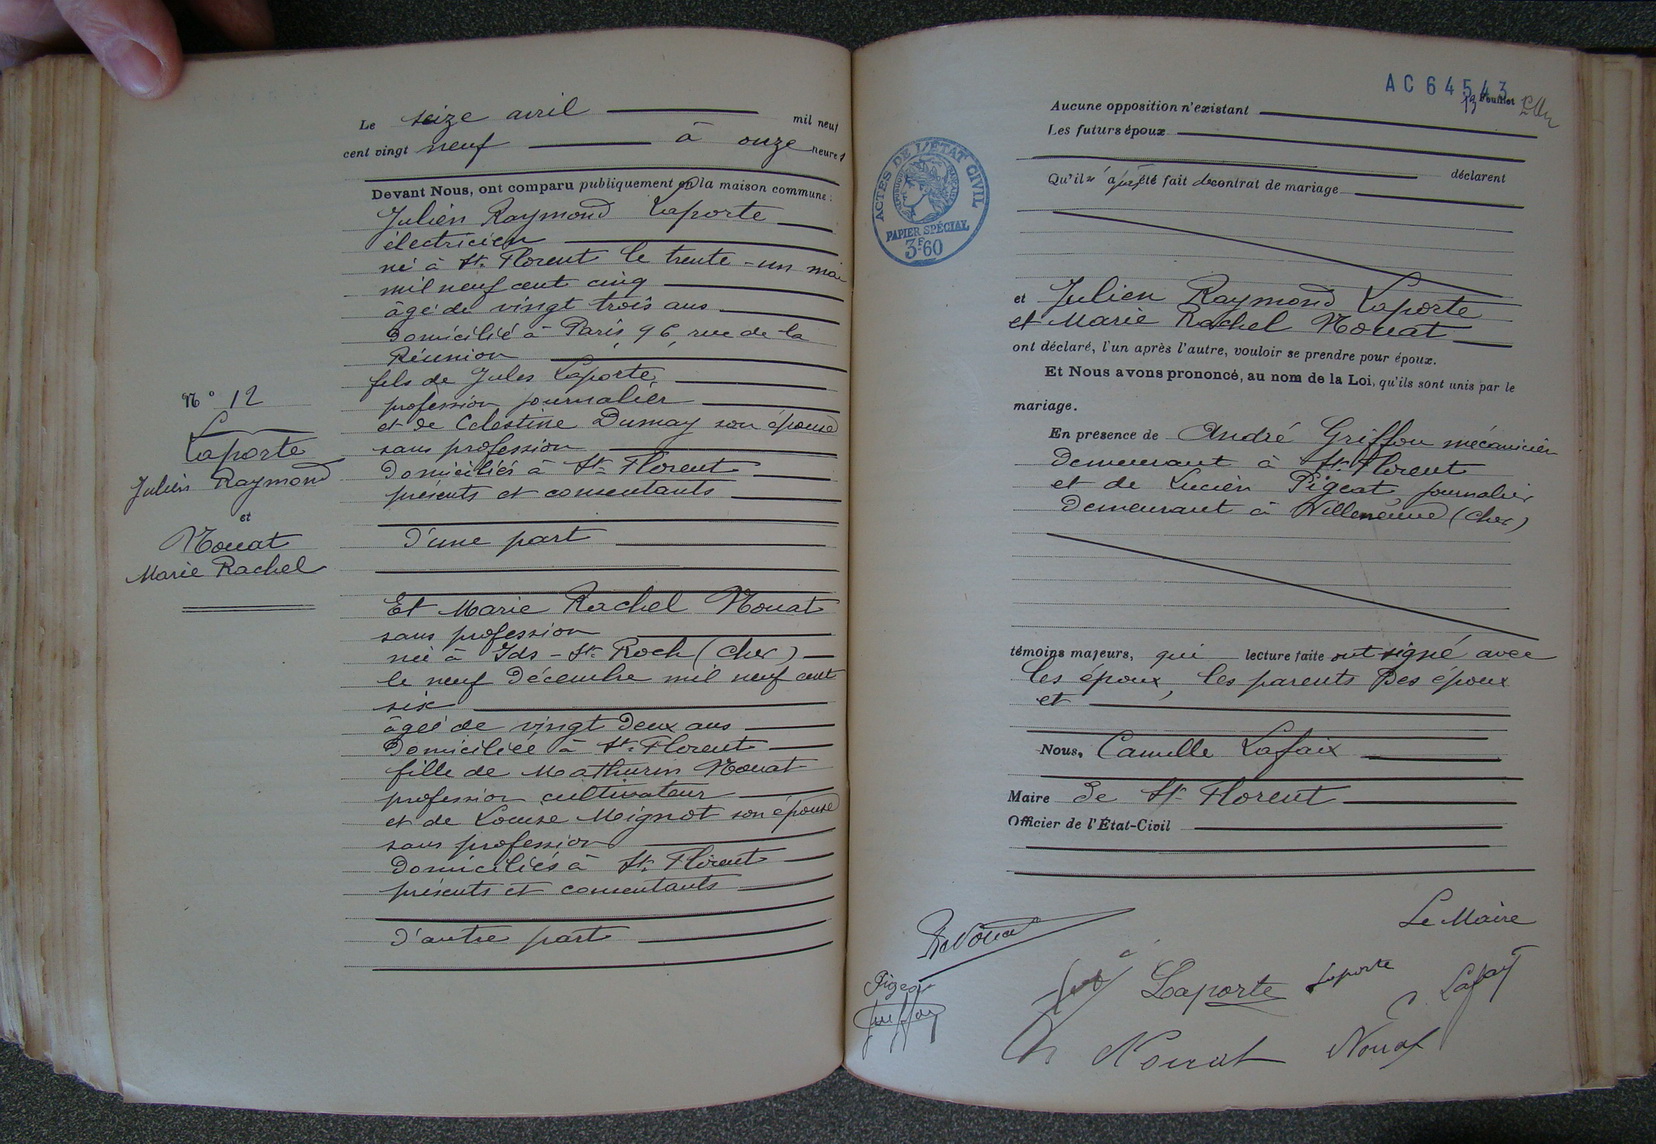 Le seize avril mil neuf
cent vingt neuf à onze heures
Devant Nous, ont comparu publiquement en la maison commune :
Julien Raymond Laporte
électricien
né à St Florent le trente-un mai
mil neuf cent cinq
âgé de vingt trois ans
domicilié à Paris, 96, rue de la
Réunion
fils de Jules Laporte,
profession journalier
et de Celestine Dumay son épouse
sans profession
domiciliés à St Florent
présents et consentants
d'une part
N° 12
Laporte
Julien Raymond
et
Nouat
Marie Rachel
Et Marie Rachel Nouat
sans profession
née à Ids-St Roch (Cher)
le neuf décembre mil neuf cent
six
âgée de vingt deux ans
domiciliée à St Florent
fille de Mathurin Nouat
profession cultivateur
et de Louise Meignot son épouse
sans profession
domiciliés à St Florent
présents et consentants
d'autre part
AC 64543
13 Feuillet
ACTES DE L'ÉTAT CIVIL
PAPIER SPÉCIAL
3F60
Aucune opposition n'existant
Les futurs époux
déclarent
Qu'il n'a pas été fait de contrat de mariage
et Julien Raymond Laporte
et Marie Rachel Nouat
ont déclaré, l'un après l'autre, vouloir se prendre pour époux.
Et Nous avons prononcé, au nom de la Loi, qu'ils sont unis par le
mariage.
En présence de André Griffon mécanicien
demeurant à St Florent
et de Lucien Pigeat, journalier
demeurant à Villeneuve (Cher)
témoins majeurs, qui lecture faite ont signé avec
les époux, les parents des époux
et
Nous, Camille Lafaix
Maire de St Florent
Officier de l'État-Civil
Le Maire
R Nouat
Pigeat
Griffon
Laporte
Laporte
Lafaix
Nouat
Nouat